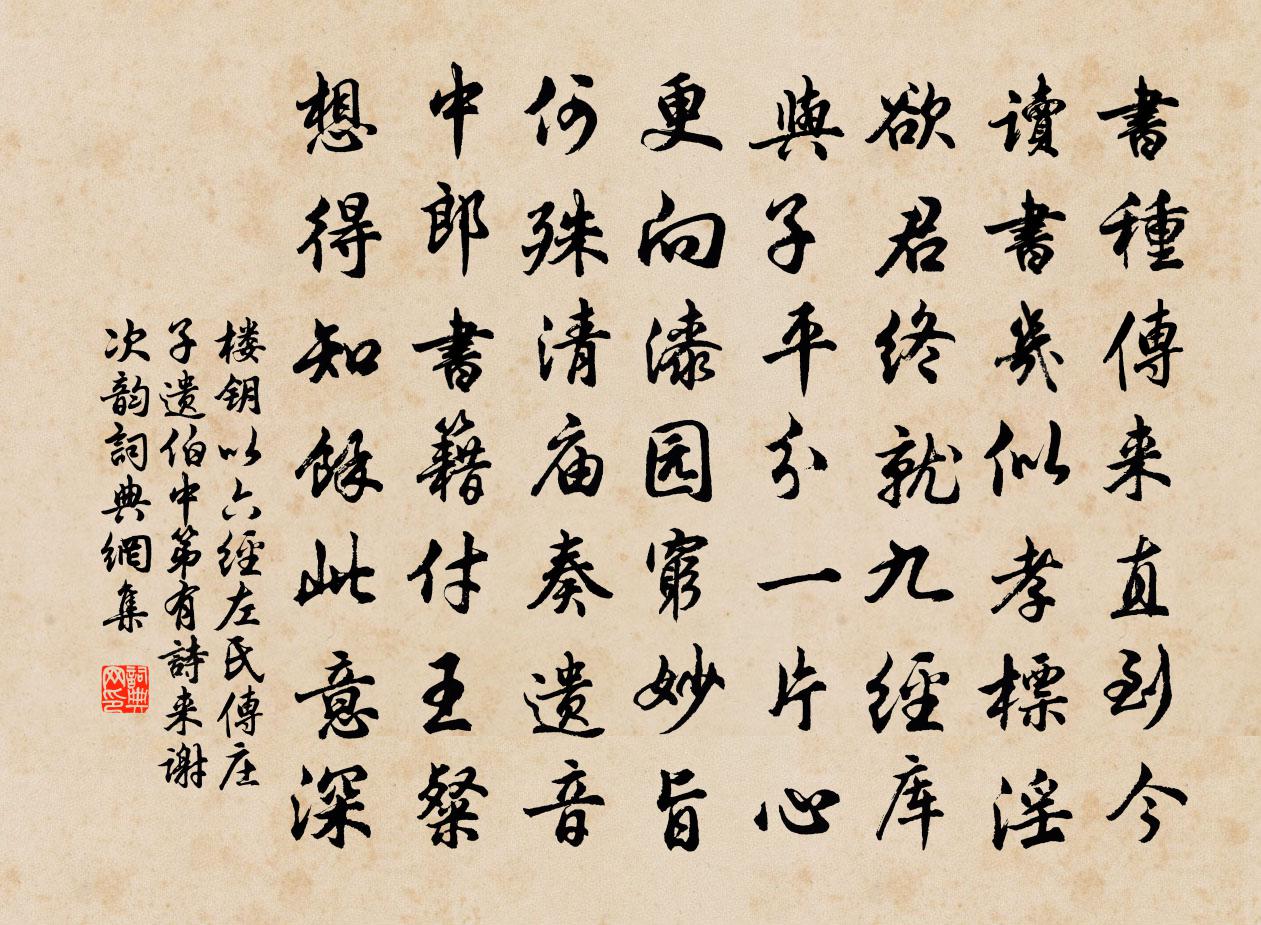 書種傳来直到今
讀書幾似孝標淫
欲君终就九經库
與子平分一片心
更向漆园窮妙旨
何殊清庙奏遗音
中郎書籍付王粲
想得知餘此意深
楼钥以六經左氏傳庄
子遗伯中第有詩来谢
次韵詞典網集
詞典
网印